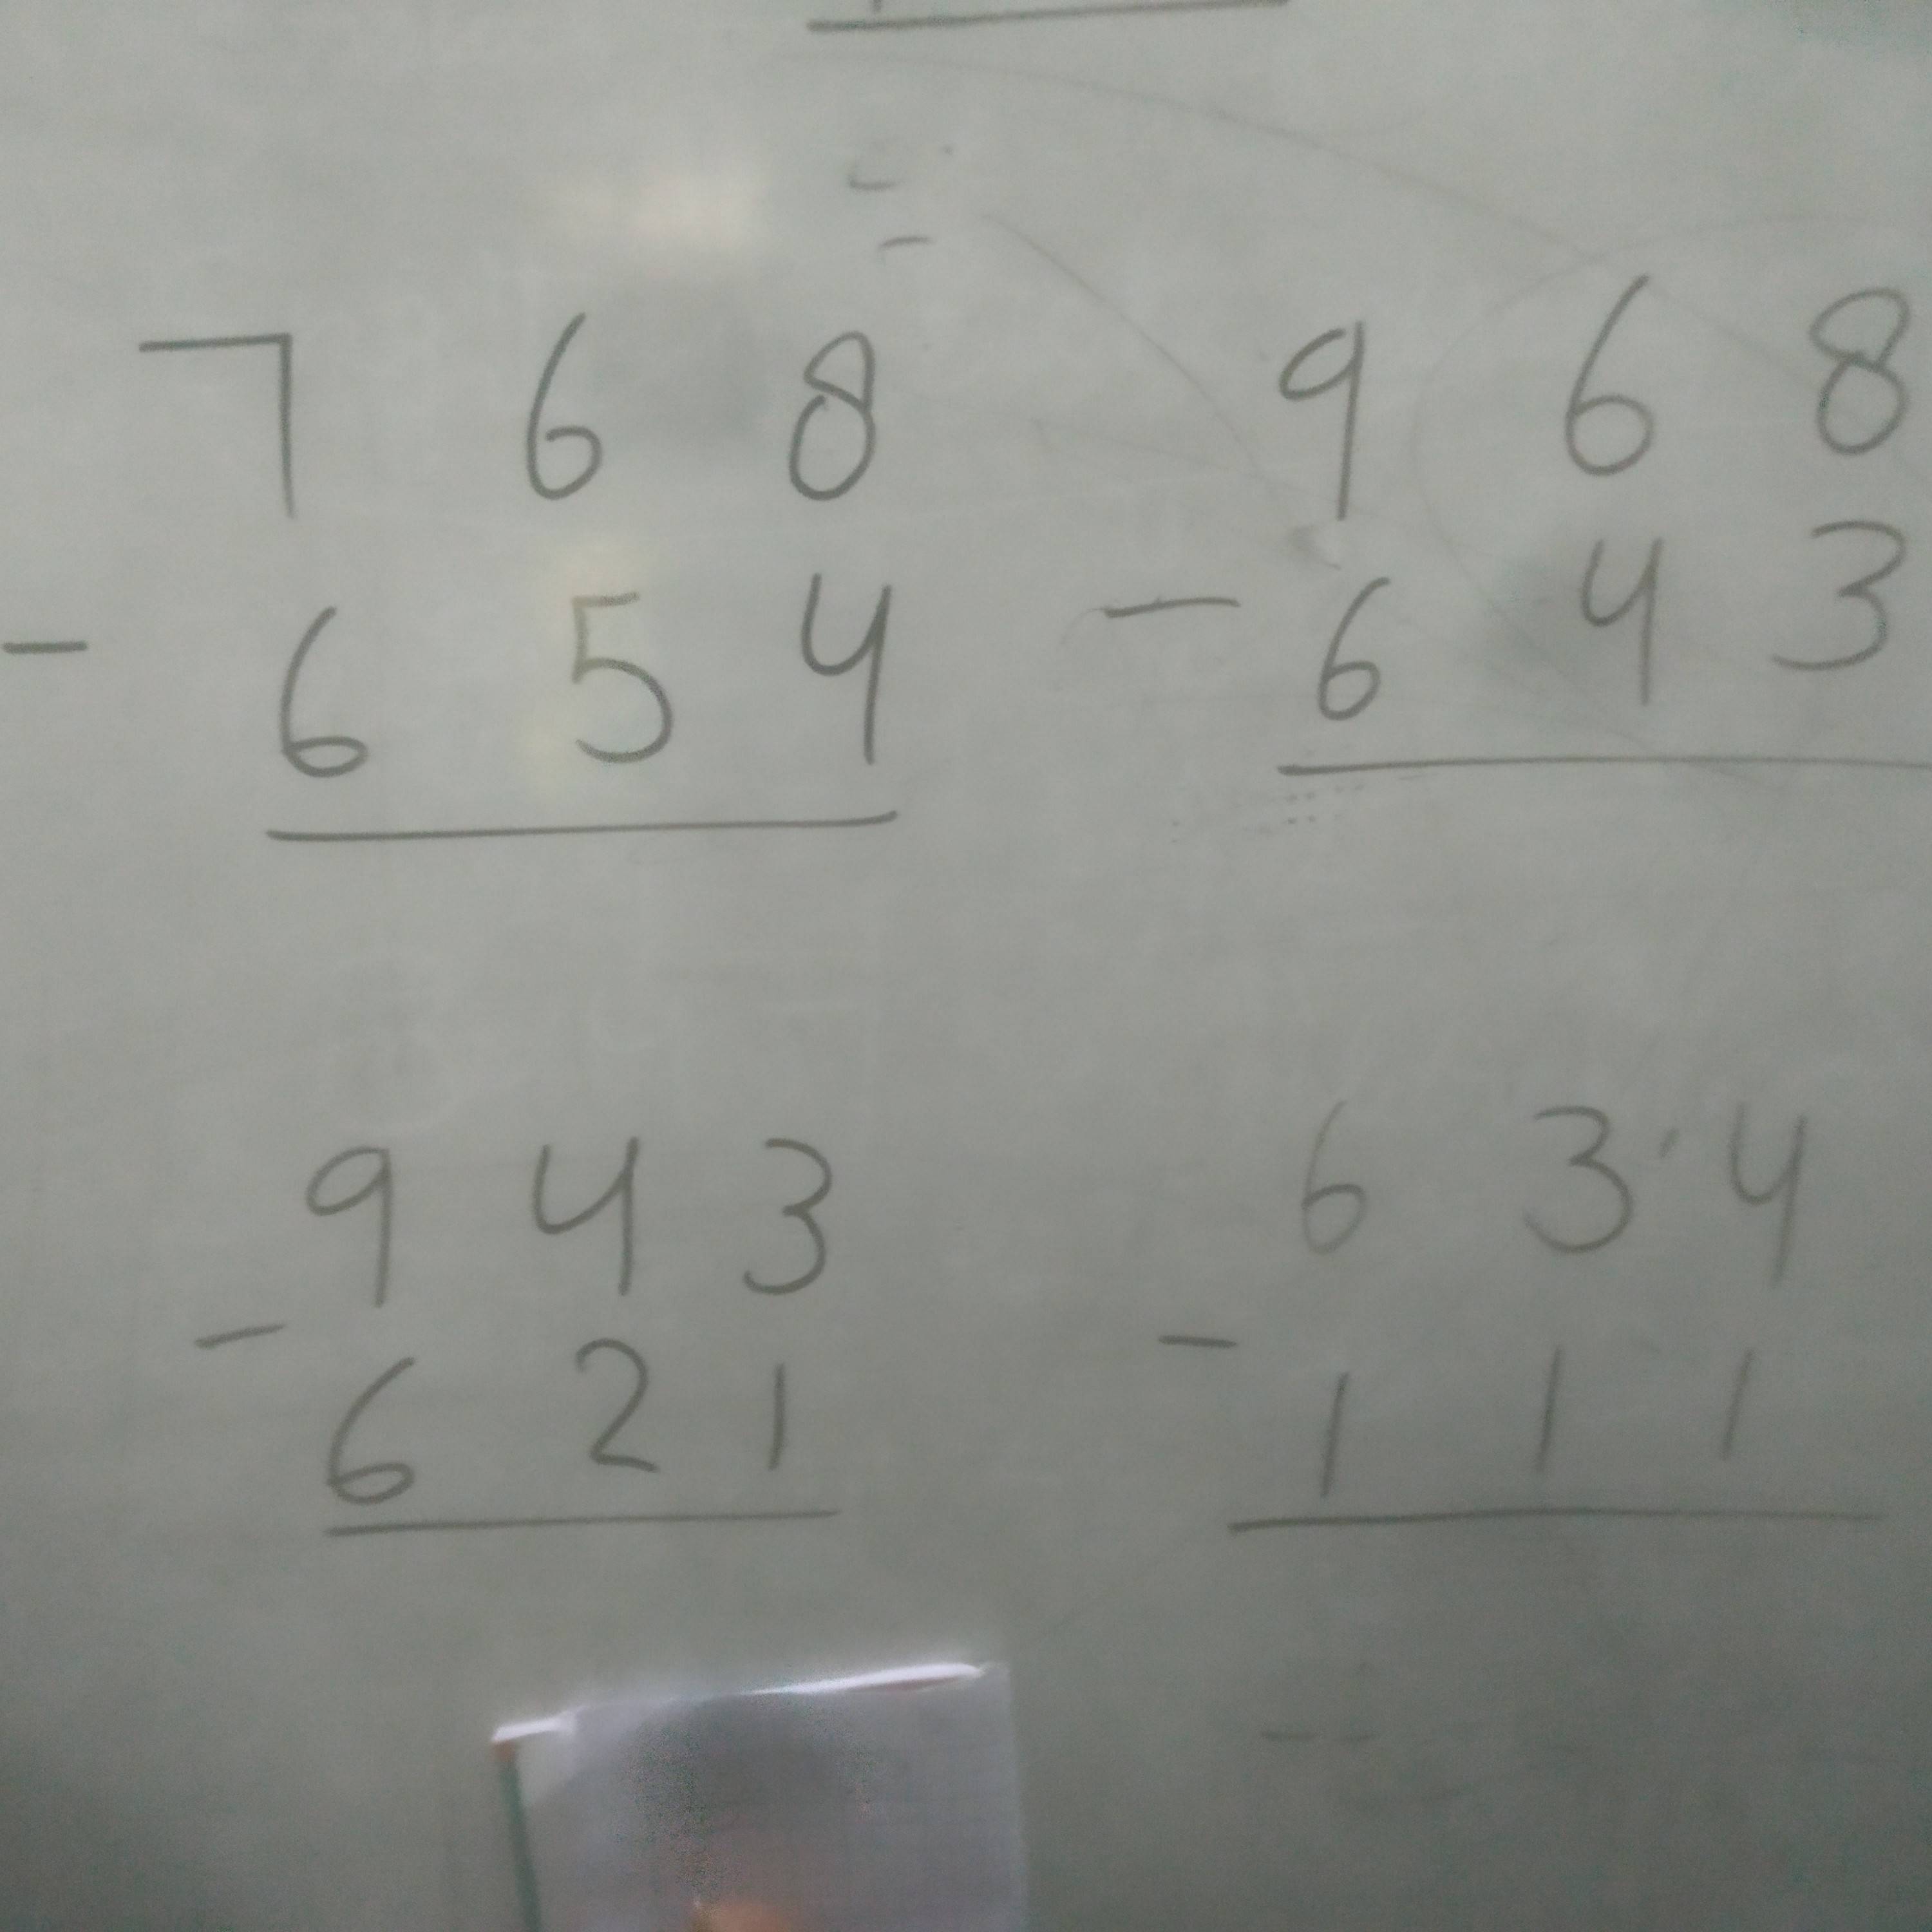 7 6 8
- 6 5 4
9 6 8
- 6 4 3
9 4 3
- 6 2 1
6 3 4
- 1 1 1